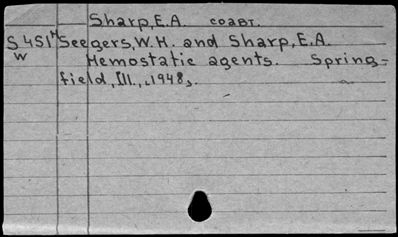 Sharp, E.A. соавт.
S 451ᴴ Seegers, W.H. and Sharp, E.A.
W Hemostatic agents. Spring=
field, Ill., c1948.